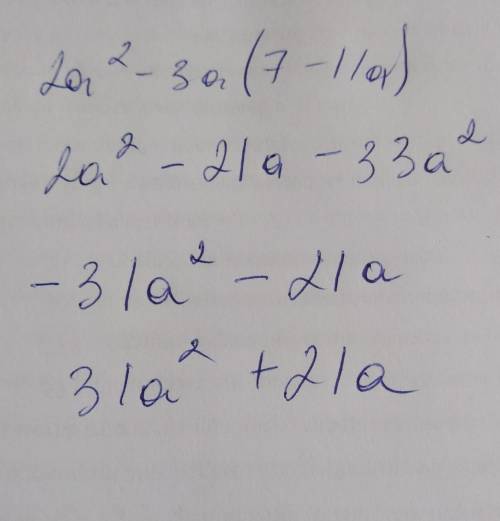 2a² - 3a(7 - 11a)
2a² - 21a - 33a²
-31a² - 21a
31a² + 21a